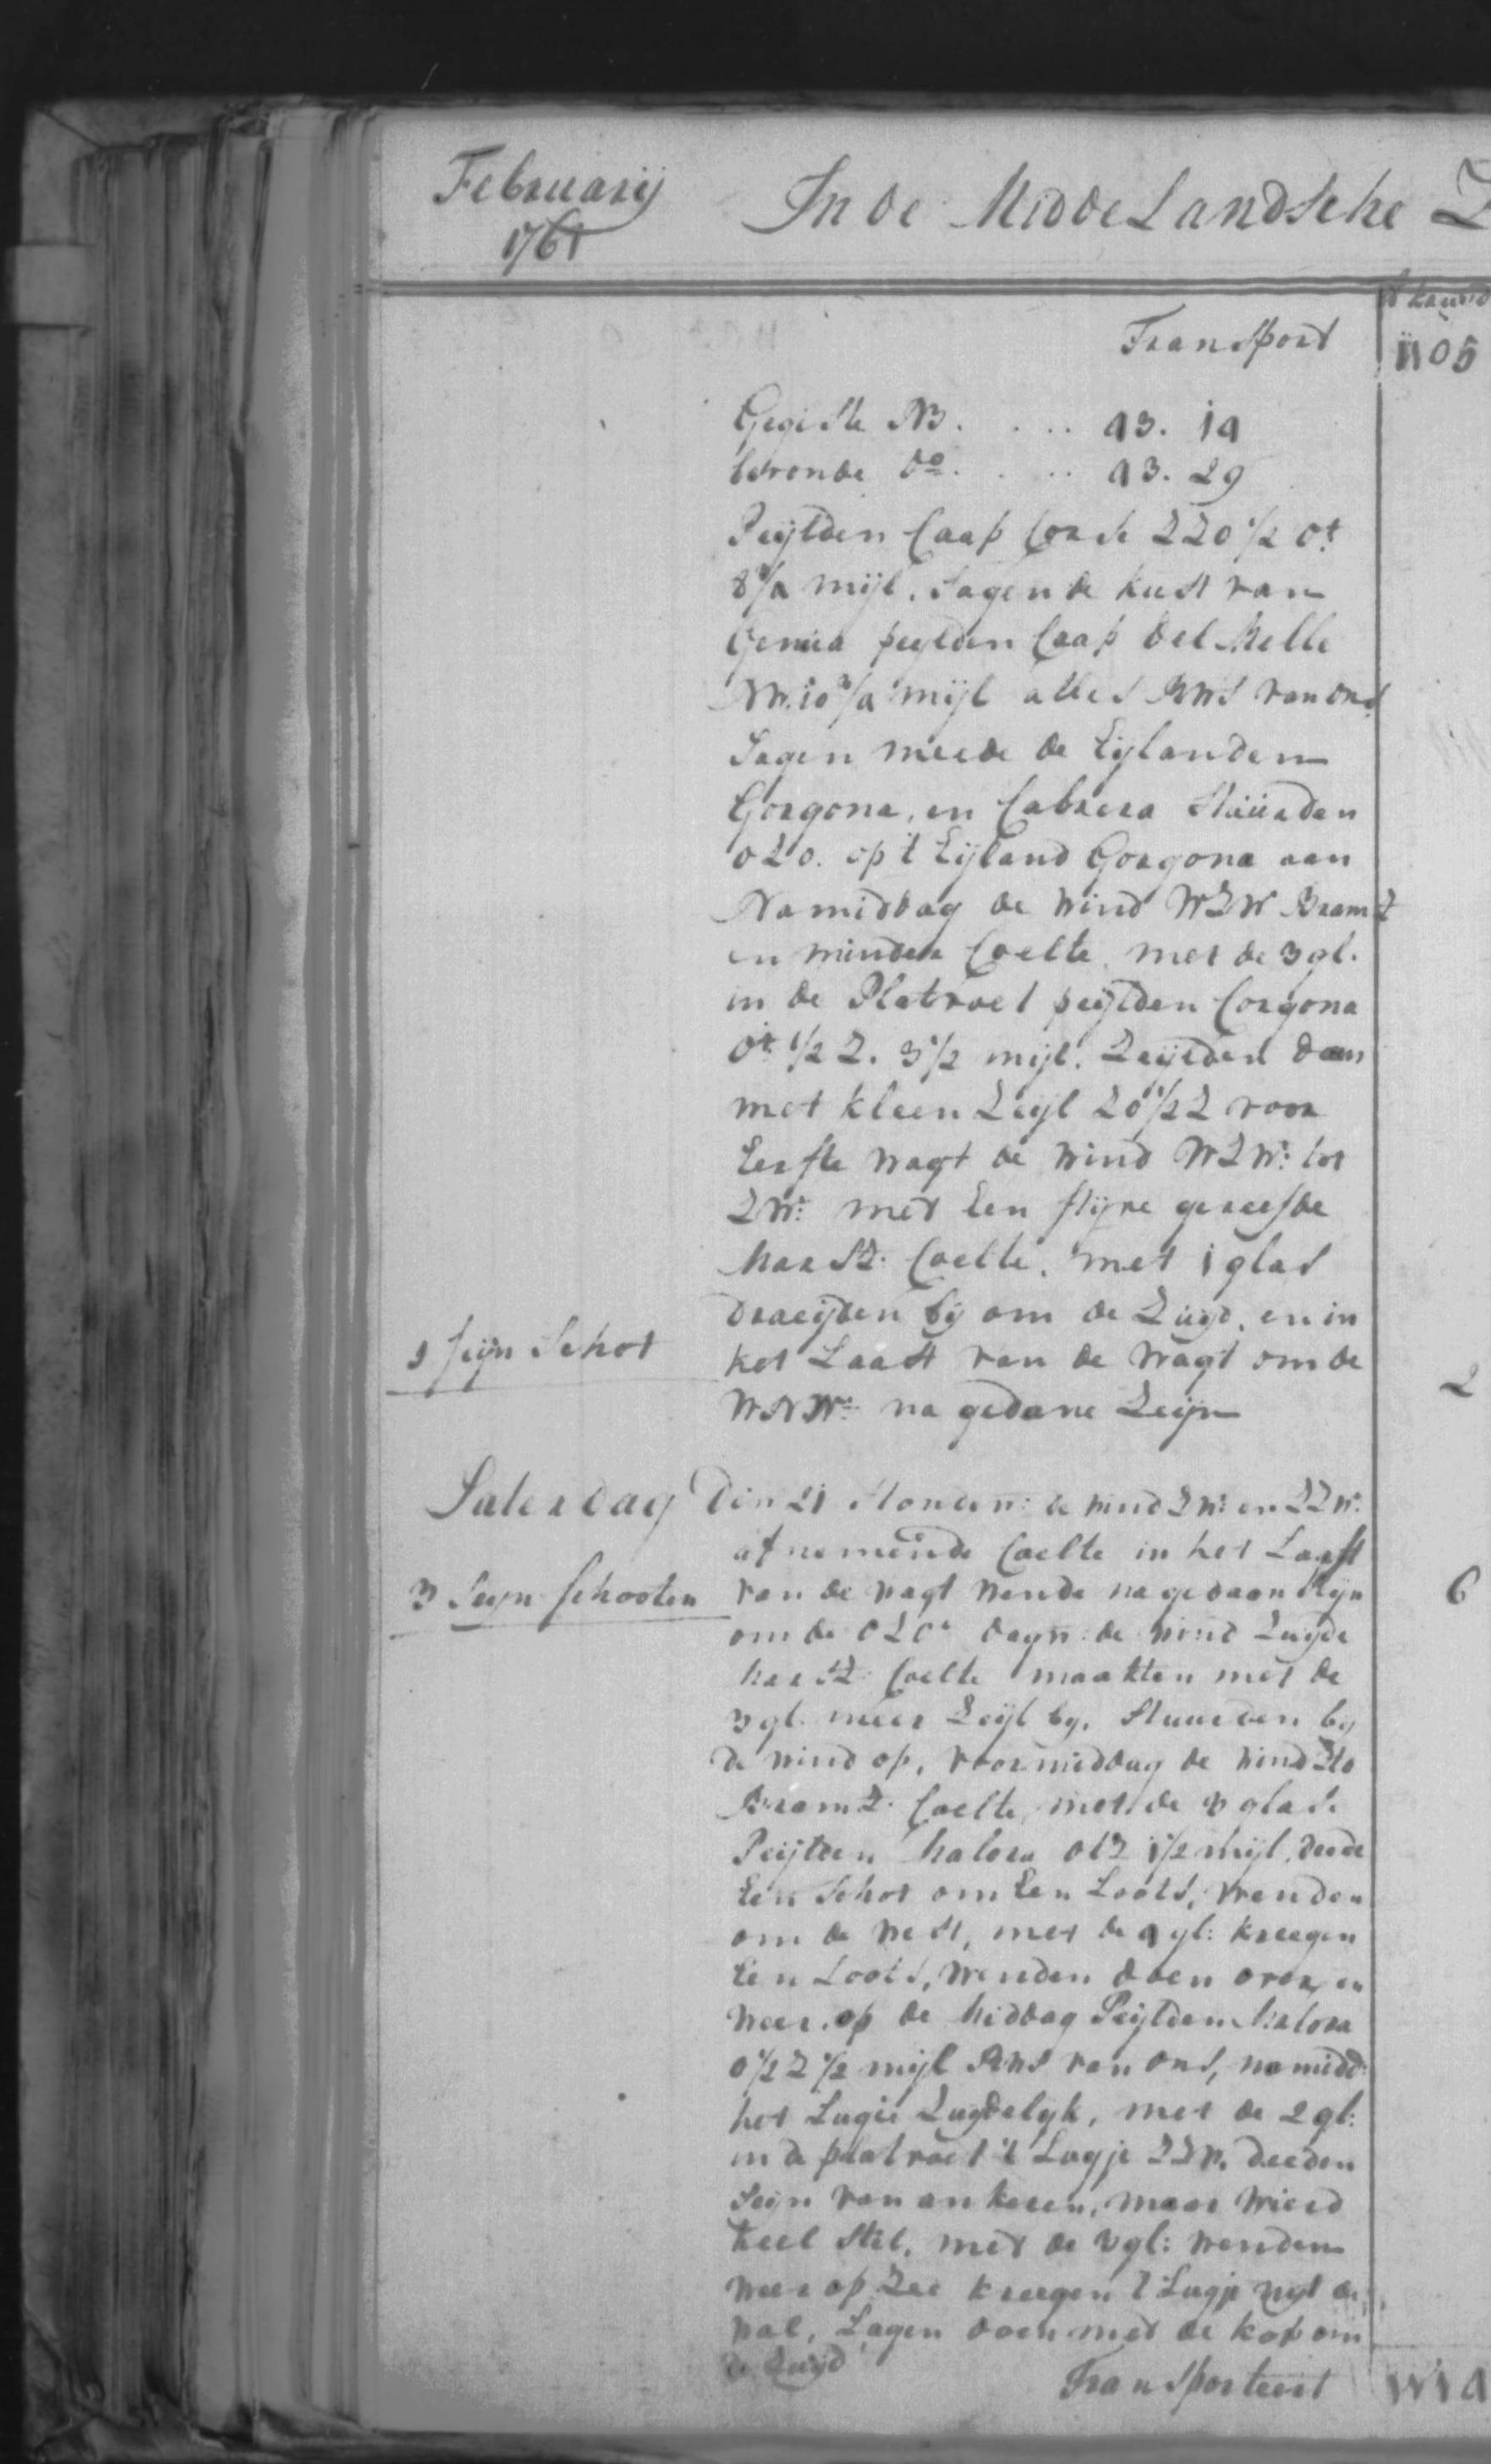 Februarij
1761
In de Middelandsche Z
't kruid
Transport
1105
Gegiste NB. . . . 43. 14
bevonde do. . . . 43. 29
Peijlden Caap Corse ZZO 1/2 Ot
8 3/4 mijl. Sagen de kust van
Genua peijlden Caap del Melle
NW. 10 3/4 mijl alles RWS van ons
Sagen meede de Eijlanden
Gorgona, en Cabrera Stüürden
OZO. op 't Eijland Gorgona aan
Namiddag de Wind WZW Bram Z
en minder Coelte. met de 3 gl.
in de Platvoet peijlden Gorgona
Ot 1/2 Z. 3 1/2 mijl. Zeijlden doen
met kleen Zeijl ZO 1/2 Z voor
Eerste wagt de Wind WZW: tot
ZW: met Een stijve gereefde
Mars Z: Coelte. met 1 glas
draeijden bij om de Zuijd. en in
1 sijn Schot
het Laast van de Wagt om de
2
WNW: na gedane Zeijn
Saterdag Den 21 Honden: de wind ZW: en ZZW:
afnemende Coelte in het Laast
3 Seijn schooten
van de wagt wende na gedaan Seijn
6
om de OZO: dagw: de wind Zuijde
Mars Z: Coelte maakten met de
3 gl. meer Zeijl bij. Stuurden bij
de wind op, voormiddag de wind ZtO
Bram Z. Coelte, met de 3 glase
Peijlden Malora OtZ 1 1/2 mijl, deede
Een Schot om Een Loots, wenden
om de West, met de 4 gl: kreegen
Een Loots, Wenden doen over en
weer. op de Middag Peijlden Malora
O 1/2 Z 1/2 mijl RWS van ons, namidd:
het Lugie Zuijdelijk, met de 2 gl:
in de platvoet 't Lugje ZZW. deeden
Seijn van ankeren, maar wierd
heel Stil. met de 3 gl: wenden
weer op Zee kreegen 't Lugje uijt de
wal, Lagen doen met de kop om
de Zuijd
Transporteert
1114